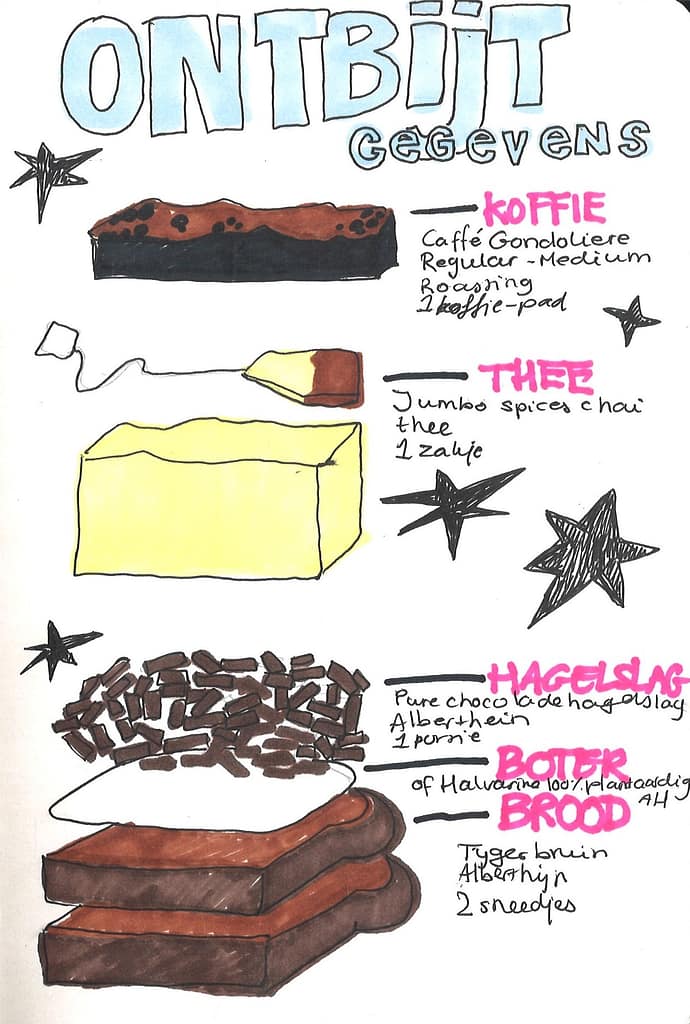 ONTBijT
GEGEVENS
KOFFIE
Caffé Gondoliere
Regular - Medium
Roasting
1 koffie-pad
THEE
Jumbo spices chai
thee
1 zakje
HAGELSLAG
Pure chocolade hagelslag
Alberthein
1 porsie
BOTER
of Halvarine 100% plantaardig
AH
BROOD
Tygerbruin
Alberthijn
2 sneedjes